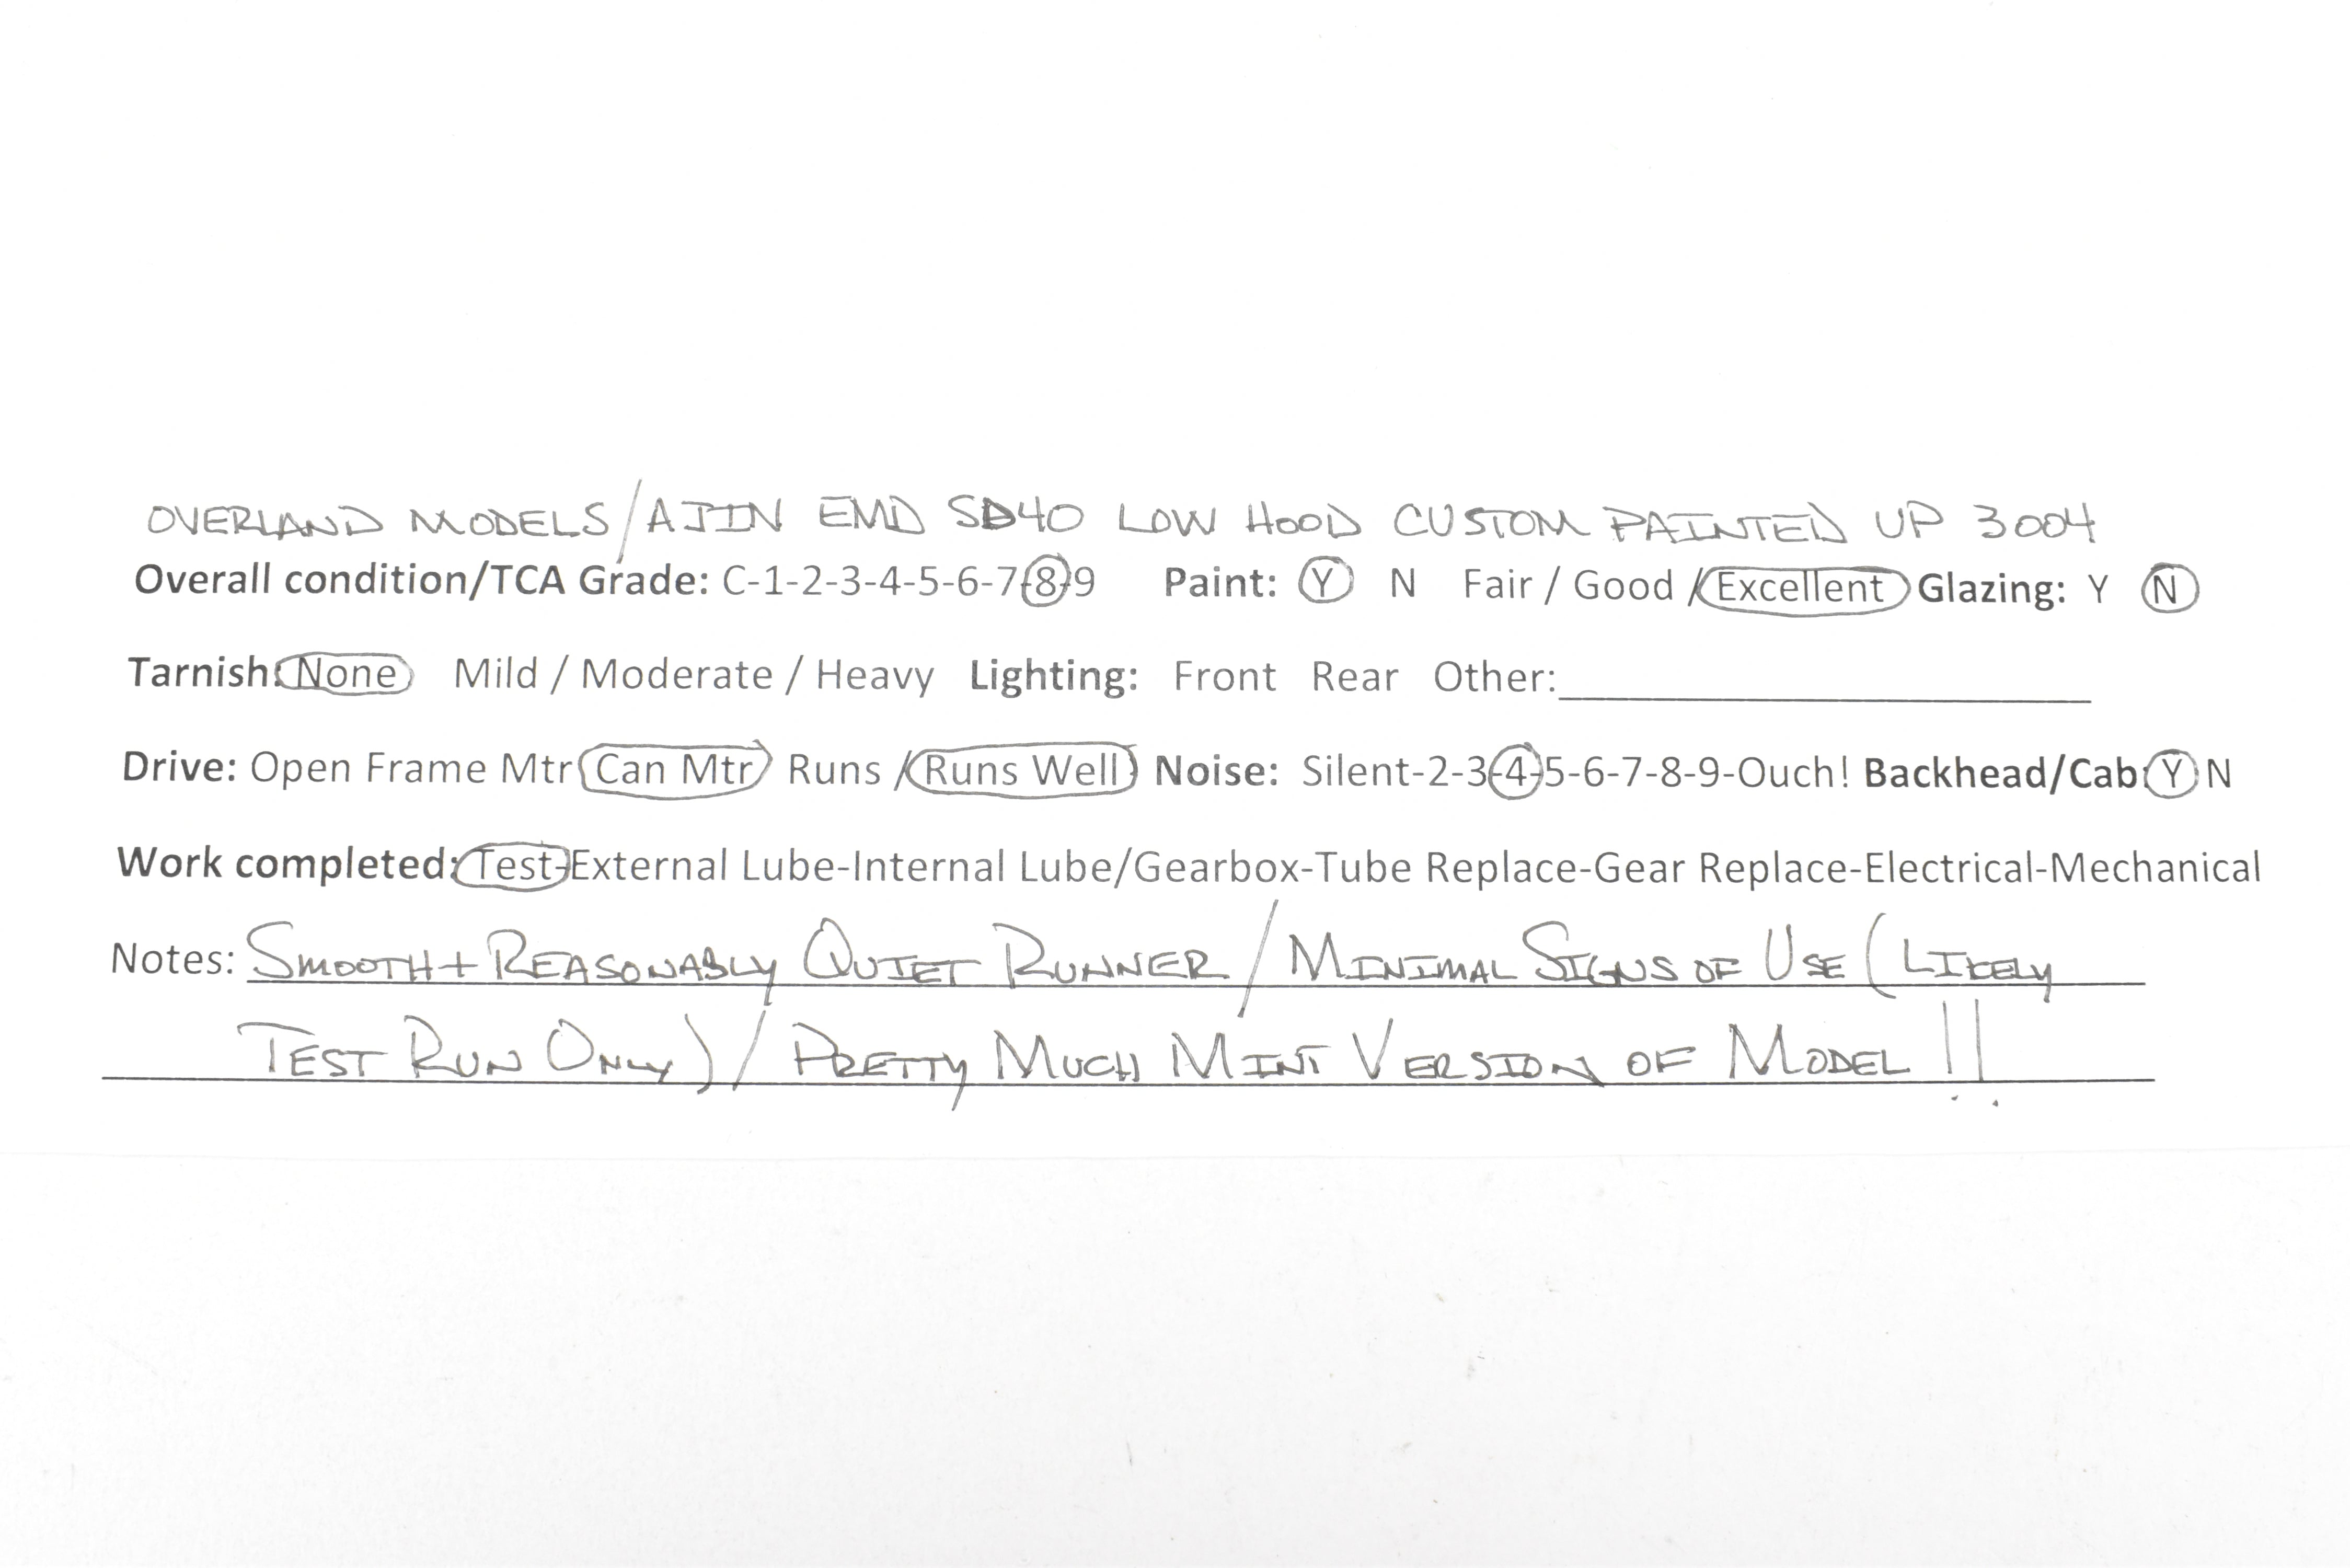 OVERLAND MODELS/AJIN EMD SD40 LOW HOOD CUSTOM PAINTED UP 3004
Overall condition/TCA Grade: C-1-2-3-4-5-6-7-8-9 Paint: Y N Fair / Good / Excellent Glazing: Y N
Tarnish: None Mild / Moderate / Heavy Lighting: Front Rear Other:
Drive: Open Frame Mtr Can Mtr Runs / Runs Well Noise: Silent-2-3-4-5-6-7-8-9-Ouch! Backhead/Cab: Y N
Work completed: Test-External Lube-Internal Lube/Gearbox-Tube Replace-Gear Replace-Electrical-Mechanical
Notes: SMOOTH + REASONABLY QUIET RUNNER / MINIMAL SIGNS OF USE (LIKELY
TEST RUN ONLY) / PRETTY MUCH MINT VERSION OF MODEL !!